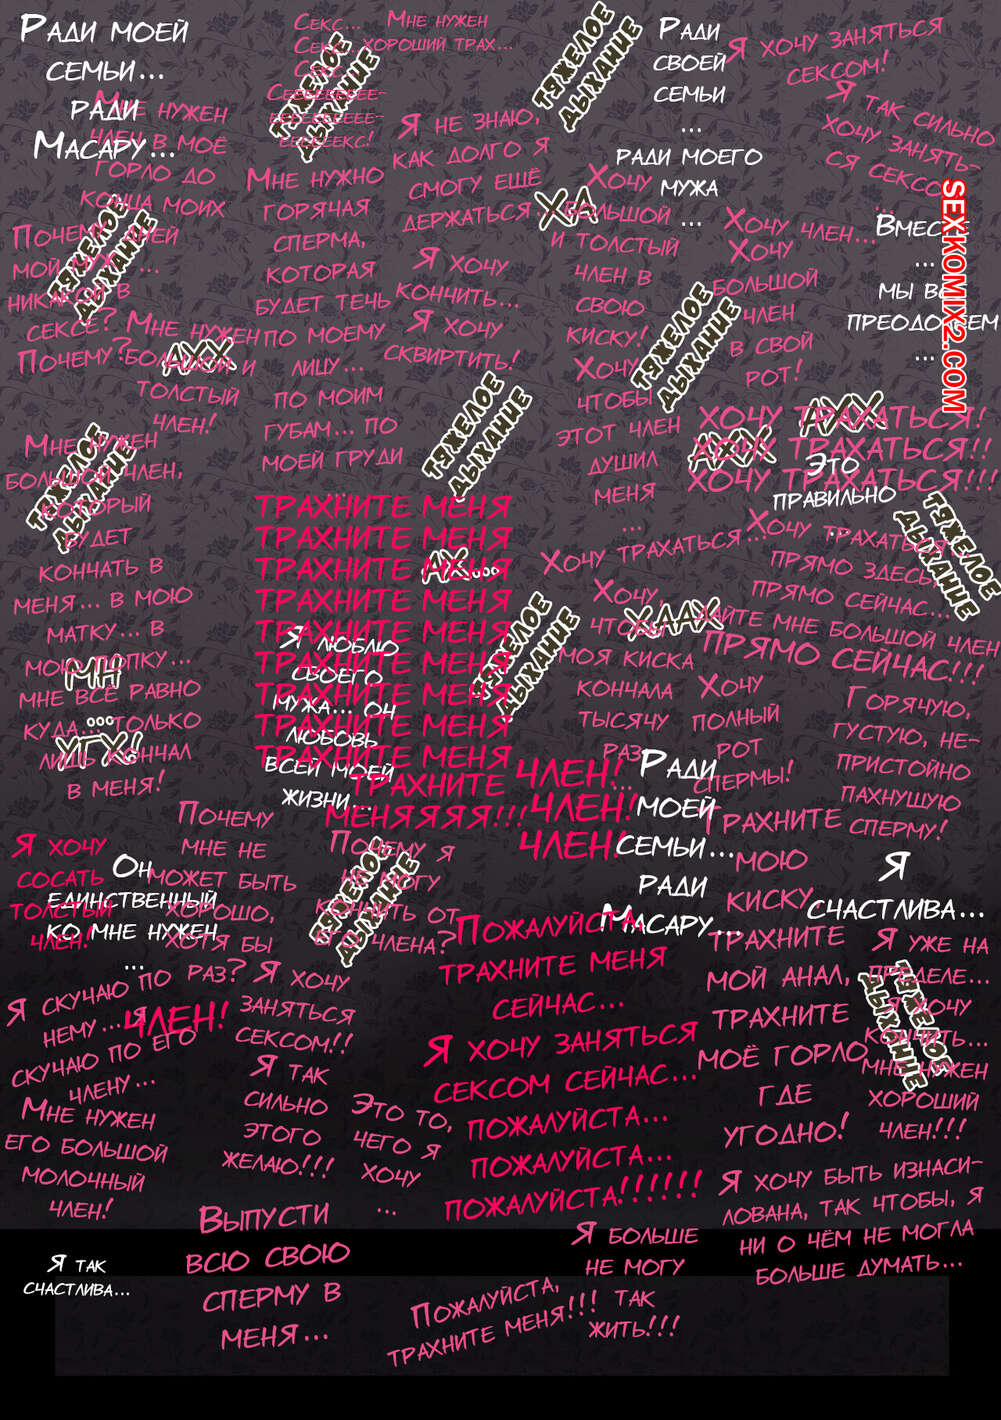 Ради моей
семьи...
ради
Масару...
Мне нужен
член в моё
горло до
конца моих
дней
Секс...
Секс...
Секс...
Сееееееееее-
еееееееееее-
еееееекс!
Мне нужен
хороший трах...
тяжелое
дыхание
тяжелое
дыхание
Ради
своей
семьи
...
ради моего
мужа
...
Я хочу заняться
сексом!
Я так сильно
хочу занять-
ся сексом
...
Почему
мой муж...
никакой в
сексе?
Почему?
тяжелое
дыхание
Мне нужно
горячая
сперма,
которая
будет течь
по моему
лицу...
по моим
губам... по
моей груди
...
Я не знаю,
как долго я
смогу ещё
держаться...
ХА
Я хочу
кончить...
Я хочу
сквиртить!
Хочу
большой
и толстый
член в
свою
киску!
Хочу
чтобы
этот член
душил
меня
...
Хочу член...
Хочу
большой
член
в свой
рот!
Вместе
...
мы всё
преодолеем
...
SEXKOMIX2.COM
Мне нужен
большой и
толстый
член!
АХХ
тяжелое
дыхание
тяжелое
дыхание
Мне нужен
большой член,
который
будет
кончать в
меня... в мою
матку... в
мою попку...
мне всё равно
куда... только
лишь кончал
в меня!
тяжелое
дыхание
МН
...
УГХ!
ТРАХНИТЕ МЕНЯ
ТРАХНИТЕ МЕНЯ
ТРАХНИТЕ МЕНЯ
ТРАХНИТЕ МЕНЯ
ТРАХНИТЕ МЕНЯ
ТРАХНИТЕ МЕНЯ
ТРАХНИТЕ МЕНЯ
ТРАХНИТЕ МЕНЯ
ТРАХНИТЕ МЕНЯ
ТРАХНИТЕ
МЕНЯЯЯЯ!!!
АХ...
Я люблю
своего
мужа... он
любовь
всей моей
жизни...
тяжелое
дыхание
ХОЧУ ТРАХАТЬСЯ!
ХОЧУ ТРАХАТЬСЯ!!
ХОЧУ ТРАХАТЬСЯ!!!
АХХ
АХХ
Это
правильно
...
Хочу трахаться...
Хочу,
чтобы
моя киска
кончала
тысячу
раз...
ХЛААХ
Хочу трахаться
прямо здесь,
прямо сейчас...
дайте мне большой член
ПРЯМО СЕЙЧАС!!!
тяжелое
дыхание
Хочу
полный
рот
спермы!
Горячую,
густую, не-
пристойно
пахнущую
сперму!
ЧЛЕН!
ЧЛЕН!
ЧЛЕН!
Ради
моей
семьи...
ради
Масару...
Я хочу
сосать
толстый
член!
Он
единственный
кто мне нужен
...
Почему
мне не
может быть
хорошо,
хотя бы
раз?
Почему я
не могу
кончить от
его члена?
тяжелое
дыхание
Трахните
мою
киску,
трахните
мой анал,
трахните
моё горло
где
угодно!
Я
счастлива...
Я уже на
пределе...
Я хочу
кончить...
мне нужен
хороший
член!!!
тяжелое
дыхание
Я скучаю по
нему... я
скучаю по его
члену...
ЧЛЕН!
Я хочу
заняться
сексом!!
Пожалуйста,
трахните меня
сейчас...
Я хочу заняться
сексом сейчас...
пожалуйста...
пожалуйста...
пожалуйста!!!!!!
Мне нужен
его большой
молочный
член!
Я так
сильно
этого
желаю!!!
Это то,
чего я
хочу
...
Я хочу быть изнаси-
лована, так чтобы, я
ни о чём не могла
больше думать...
Выпусти
всю свою
сперму в
меня...
Я так
счастлива...
Пожалуйста,
трахните меня!!!
Я больше
не могу
так
жить!!!